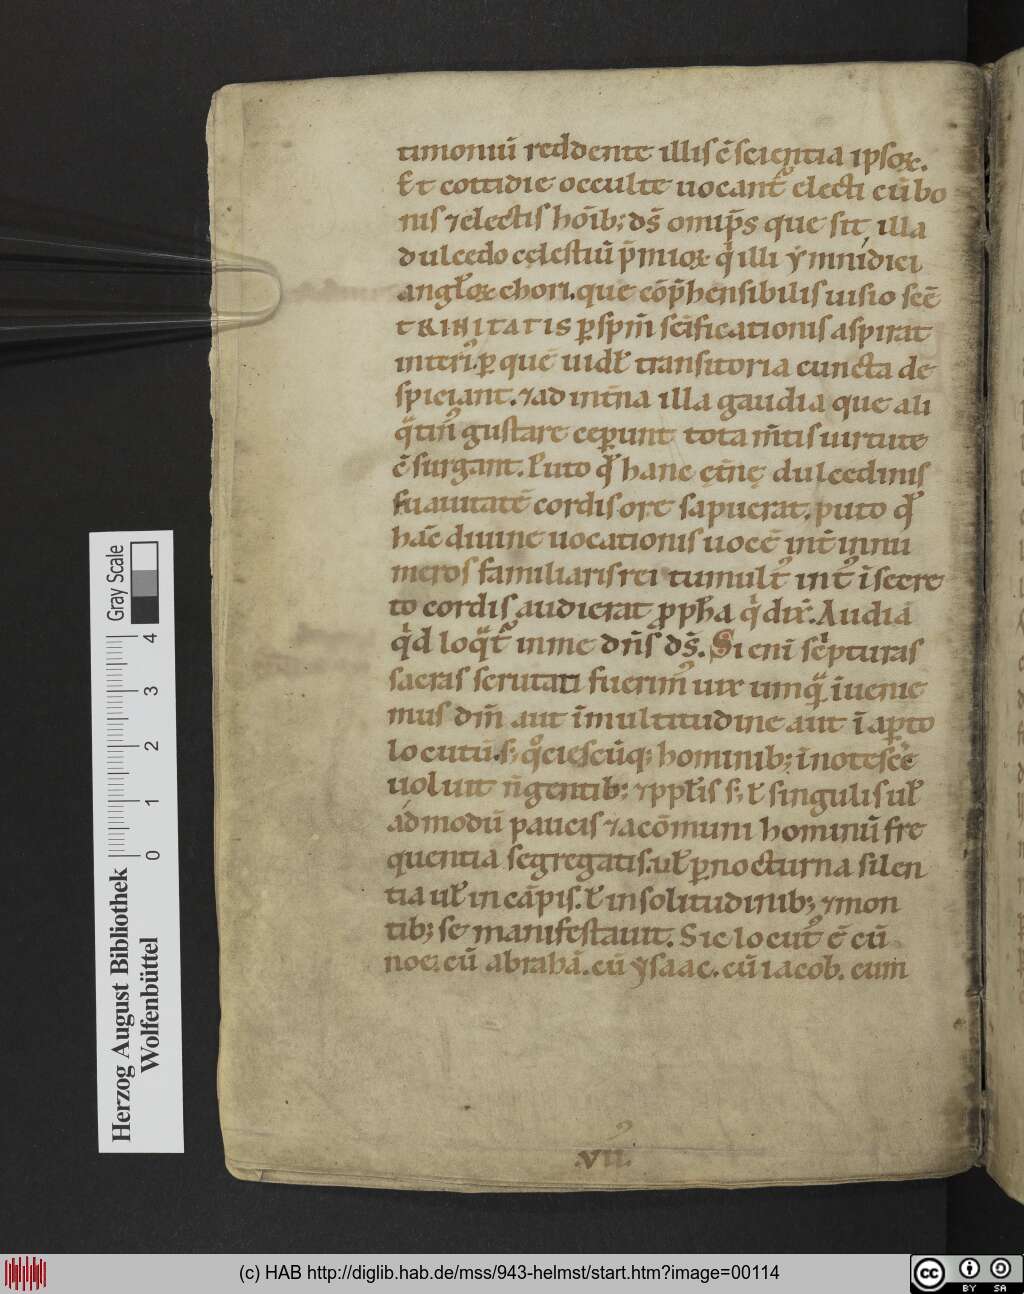 timoniū reddente illis ē scientia ipsoꝝ.
Et cottidie occulte uocant᷒ electi cū bo
nis ⁊ electis hoīb; dš omip̄s que sit illa
dulcedo cęlestiū p̄mioꝝ q̇ illi ymnidici
angłoꝝ chori. que cōp̄hensibilis uisio scē
TRINITATIS ꝑ spm̄ scīficationis aspirat
interi᷒. ꝑ quē uidł transitoria cuncta de
spiciant. ⁊ ad int̄na illa gaudia que ali
gustare ceꝑunt tota m̄tis uirtute
ē surgant. puto hanc ęt̄nę dulcedinis
suauitatē cordis ore sapuerat. puto
hāc diuine uocationis uocē int̄ innu
meros familiaris rei tumult᷒ in t᷒ ī secre
to cordis audierat ꝓpħa q̇ dix̄. Audiā
q̇d loq̄t᷒ in me dn̄s dš. Si eni scpturas
sacras scrutati fuerim᷒ uix umq̄ īuenie
mus dm̄ aut ī multitudine aut ī aꝑto
locutū. s; hominib; īnotescē
uoluit n̄ gentib; ⁊ ppłis s; ł singulis uł
ad modū paucis ⁊ a cōmuni hominū fre
quentia segregatis. uł ꝑ nocturna silen
tia uł in cāpis. ł in solitudinib; ⁊ mon
tib; se manifestauit. Sic locut᷒ ē cū
noe. cū abrahā. cū ysaac. cū iacob. cum
.vii.
Gray Scale
0 1 2 3 4
Herzog August Bibliothek
Wolfenbüttel
(c) HAB http://diglib.hab.de/mss/943-helmst/start.htm?image=00114
cc BY SA